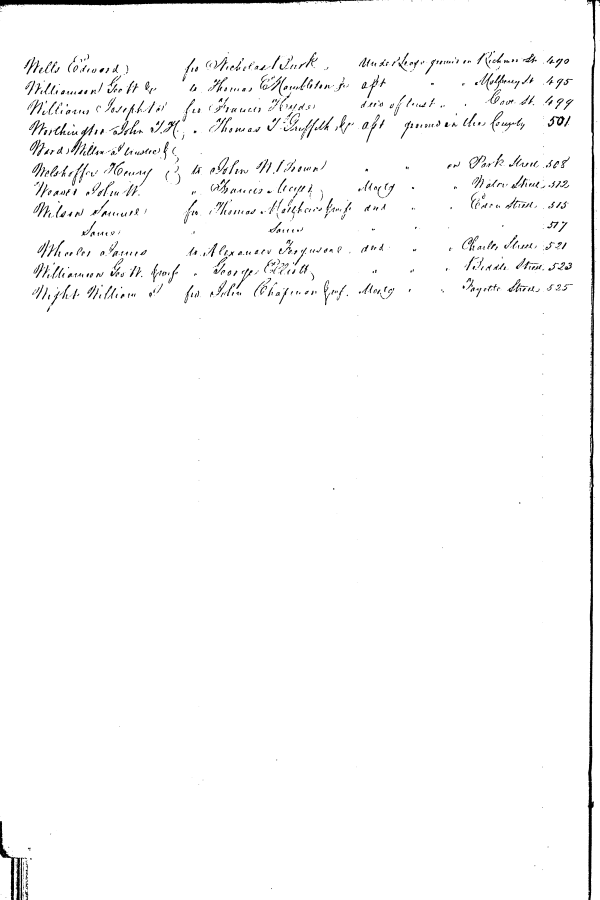 Wells Edward fro Nicholas Burk Under Lease ground on Richmon St. 490
Williamson Geo W &c to Thomas C Hambleton &c asst " " St. 495
Williams Joseph fro Francis Hyde deed of trust " " Cove St. 499
Worthington John T. H. " Thomas T Griffith &c asst ground in the County 501
Ward William Trustee &c
Henry to John M Brown " " on Park Street 508
Weaver John W. " Francis Meyer Mortg " " Water Street 512
Wilson Samuel fro Thomas Matthews & wife deed " " Eden Street 515
Same " Same " " " 517
Wheeler James to Alexander Ferguson deed " " Charles Street 521
Williamson Geo W. & wife " George Elliott " " " Biddle Street 523
Wight William J fro John Chapman & wf. Mortg " " Fayette Street 525